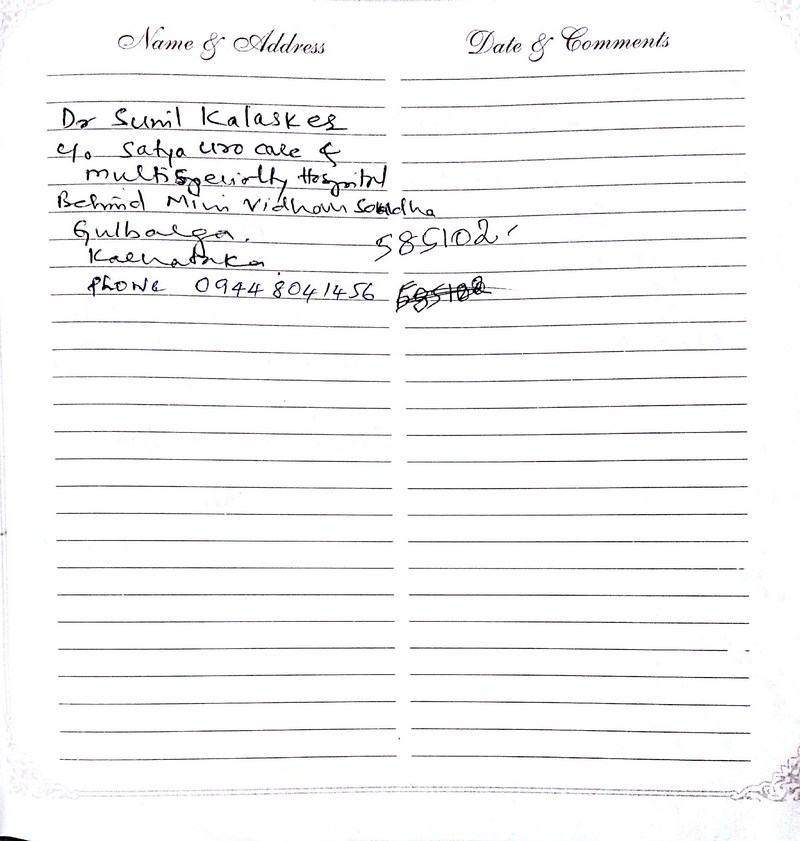 Name & Address
Date & Comments
Dr Sunil Kalasker
c/o Satya uro care &
multispecialty Hospital
Behind Mini Vidhan Soudha
Gulbarga.
585102
Karnataka
Phone 09448041456